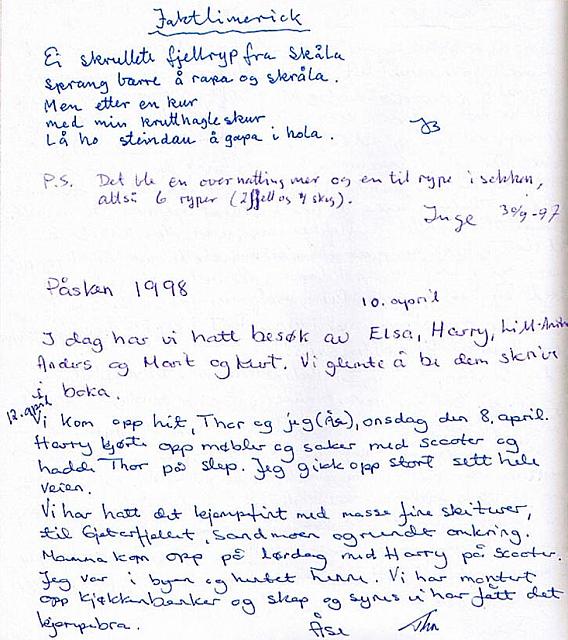 Jaktlimerick
Ei skrullete fjellryp fra Skåla
sprang barre å rapa og skråla.
Men etter en kur
med min krutthagleskur
Lå ho steindau å gapa i hola.
JB
P.S. Det ble en overnatting mer og en til rype i sekken,
altså 6 ryper (2 fjell og 4 skog).
Inge 30/9-97
Påsken 1998
10. april
I dag har vi hatt besøk av Elsa, Harry,
Anders og Marit og Kurt. Vi glemte å be dem skrive
i boka.
12. april
Vi kom opp hit, Thor og jeg, onsdag den 8. april.
Harry kjørte opp møbler og saker med scooter og
hadde Thor på slep. Jeg gikk opp stort sett hele
veien.
Vi har hatt det kjempefint med masse fine skiturer,
til Gjeterfjellet, Sandmoen og rundt omkring.
Mamma kom opp på lørdag med Harry på scooter.
Jeg var i byen og hentet henne. Vi har montert
opp kjøkkenbenker og skap og synes vi har fått det
kjempebra.
Åse